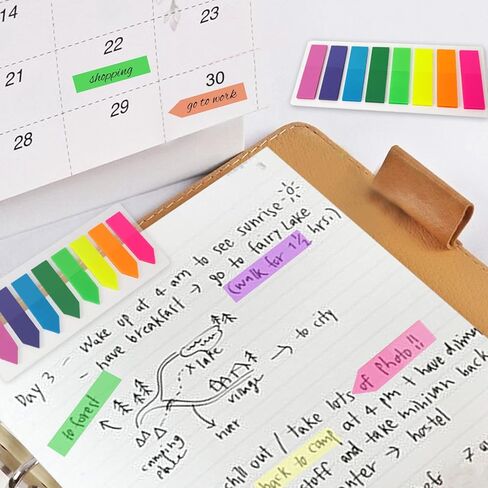 14
22
23
shopping
21
29
30
go to work
28
Day 3 - Wake up at 4 am to see sunrise
- have breakfast → go to fairy Lake
(walk for 1½ hrs.)
to forest
x lake
village
→ to city
river
camping
place
chill out / take lots of photo!!
back to camp at 4 pm + have
stuff and take minivan back
→ hostel
7